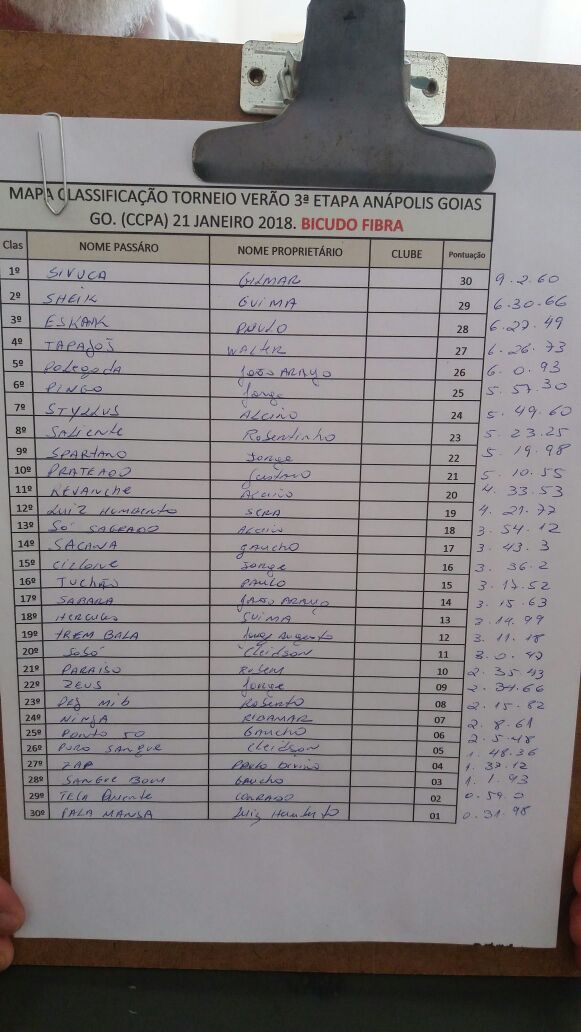 MAPA CLASSIFICAÇÃO TORNEIO VERÃO 3ª ETAPA ANÁPOLIS GOIAS
GO. (CCPA) 21 JANEIRO 2018. BICUDO FIBRA
Clas NOME PASSÁRO NOME PROPRIETÁRIO CLUBE Pontuação
1º SIVUCA GILMAR 30 9.2.60
2º SHEIK GUIMA 29 6.30.66
3º ESKAIK PAULO 28 6.27.49
4º TAPAJOŚ WALTER 27 6.26.73
5º Polegada João ARAUJO 26 6.0.93
6º PINGO Jorge 25 5.57.30
7º STYLLUS ALCINO 24 5.49.60
8º SALIENTE Rosentinho 23 5.23.25
9º SPARTANO Jorge 22 5.19.98
10º PRATEADO Gustavo 21 5.10.55
11º REVANCHE ALCINO 20 4.33.53
12º LUIZ HUMBERTO SERA 19 4.21.77
13º SÓ SAGRADO ALCINO 18 3.54.12
14º SACANA gaucho 17 3.43.3
15º Ciclone Jorge 16 3.36.2
16º TUCHÃO PAULO 15 3.17.52
17º SABARA JOÃO ARAUJO 14 3.15.63
18º HERCULES GUIMA 13 3.14.99
19º TREM BALA Luiz Augusto 12 3.11.18
20º SOSÓ Cleidson 11 3.0.47
21º PARAISO 10 2.35.43
22º ZEUS Jorge 09 2.34.66
23º Dez mib Roberto 08 2.15.82
24º NINJA RIDAMAR 07 2.8.61
25º Ponto 50 Gaucho 06 2.5.48
26º PURO SANGUE Cleidson 05 1.48.36
27º ZAP Paulo Divino 04 1.37.12
28º SANGUE BOM Gaucho 03 1.1.93
29º TECA CONRADO 02 0.59.0
30º PALA MANSA Luiz Humberto 01 0.31.98